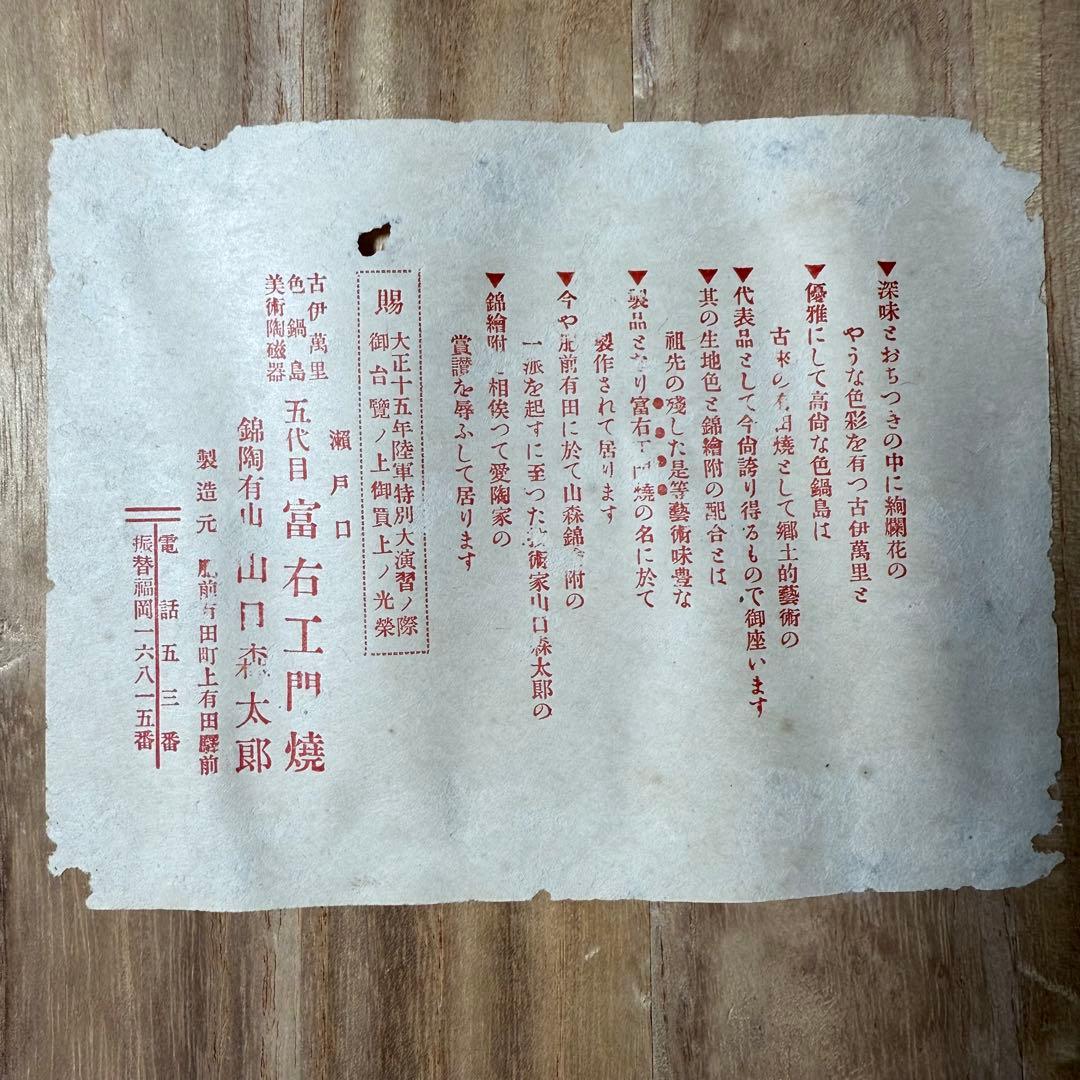 ▼深味とおちつきの中に絢爛花の
やうな色彩を有つ古伊萬里と
▼優雅にして高尙な色鍋島は
古來の有田燒として鄕土的藝術の
▼代表品として今尙誇り得るもので御座います
▼其の生地色と錦繪附の配合とは
祖先の殘した是等藝術味豊な
▼製品となり富右工門燒の名に於て
製作されて居ります
▼今や肥前有田に於て山森錦 附の
一派を起すに至つた 術家山口森太郎の
▼錦繪附 相俟つて愛陶家の
賞讃を辱ふして居ります
賜
大正十五年陸軍特別大演習ノ際
御台覽ノ上御買上ノ光榮
瀨戸口
古伊萬里
色鍋島
美術陶磁器
五代目 富右工門燒
錦陶有山 山口森太郎
製造元 肥前有田町上有田驛前
電話五三番
振替福岡一六八一五番